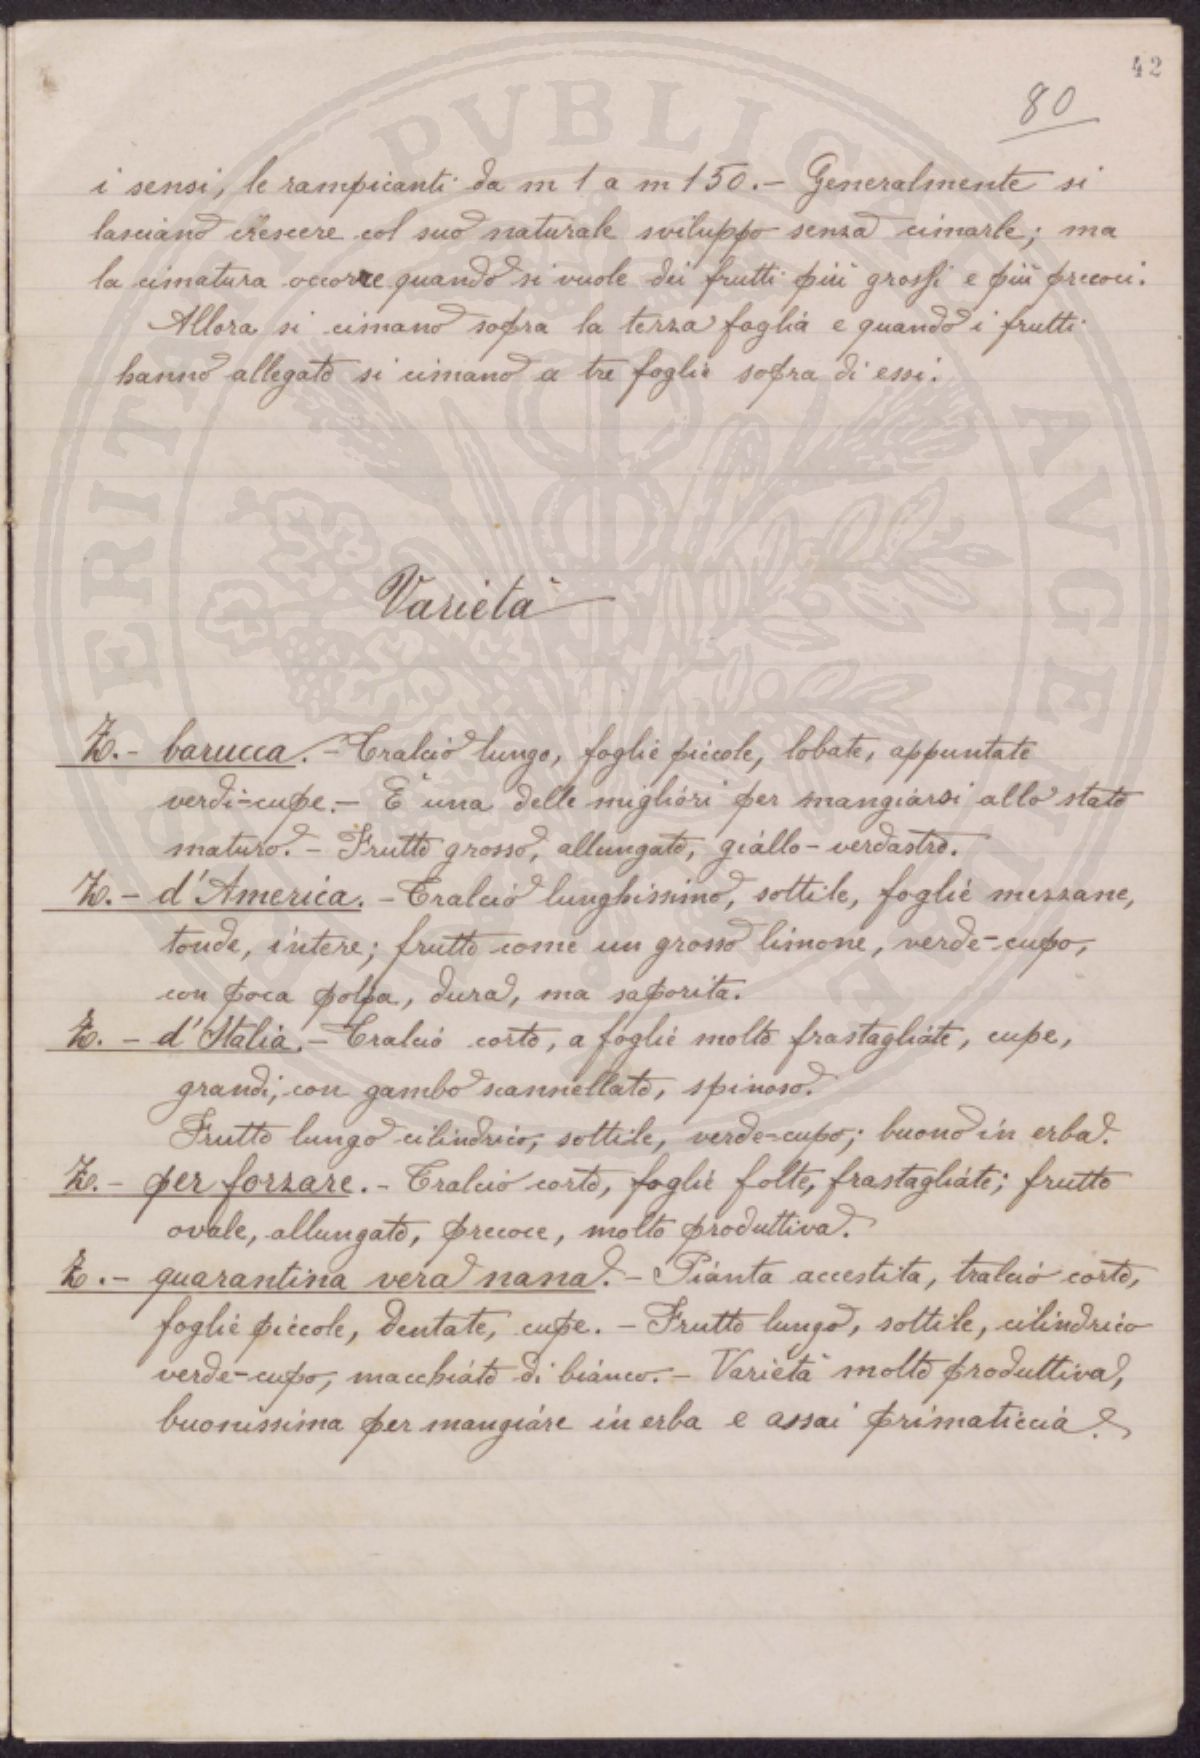 42
80
i sensi, le rampicanti da m 1 a m 1 50. – Generalmente si
lasciano crescere col suo naturale sviluppo senza cimarle; ma
la cimatura occorre quando si vuole dei frutti più grossi e più precoci.
Allora si cimano sopra la terza foglia e quando i frutti
hanno allegato si cimano a tre foglie sopra di essi.
Varietà
Z. – barucca. – Tralcio lungo, foglie piccole, lobate, appuntate
verdi-cupe. – È una delle migliori per mangiarsi allo stato
maturo. – Frutto grosso, allungato, giallo-verdastro.
Z. – d'America. – Tralcio lunghissimo, sottile, foglie mezzane,
tonde, intere; frutto come un grosso limone, verde-cupo,
con poca polpa, dura, ma saporita.
Z. – d'Italia. – Tralcio corto, a foglie molto frastagliate, cupe,
grandi, con gambo scannellato, spinoso.
Frutto lungo cilindrico, sottile, verde-cupo; buono in erba.
Z. – per forzare. – Tralcio corto, foglie folte, frastagliate; frutto
ovale, allungato, precoce, molto produttiva.
Z. – quarantina vera nana. – Pianta accestita, tralcio corto,
foglie piccole, dentate, cupe. – Frutto lungo, sottile, cilindrico
verde-cupo, macchiato di bianco. – Varietà molto produttiva,
buonissima per mangiare in erba e assai primaticcia.